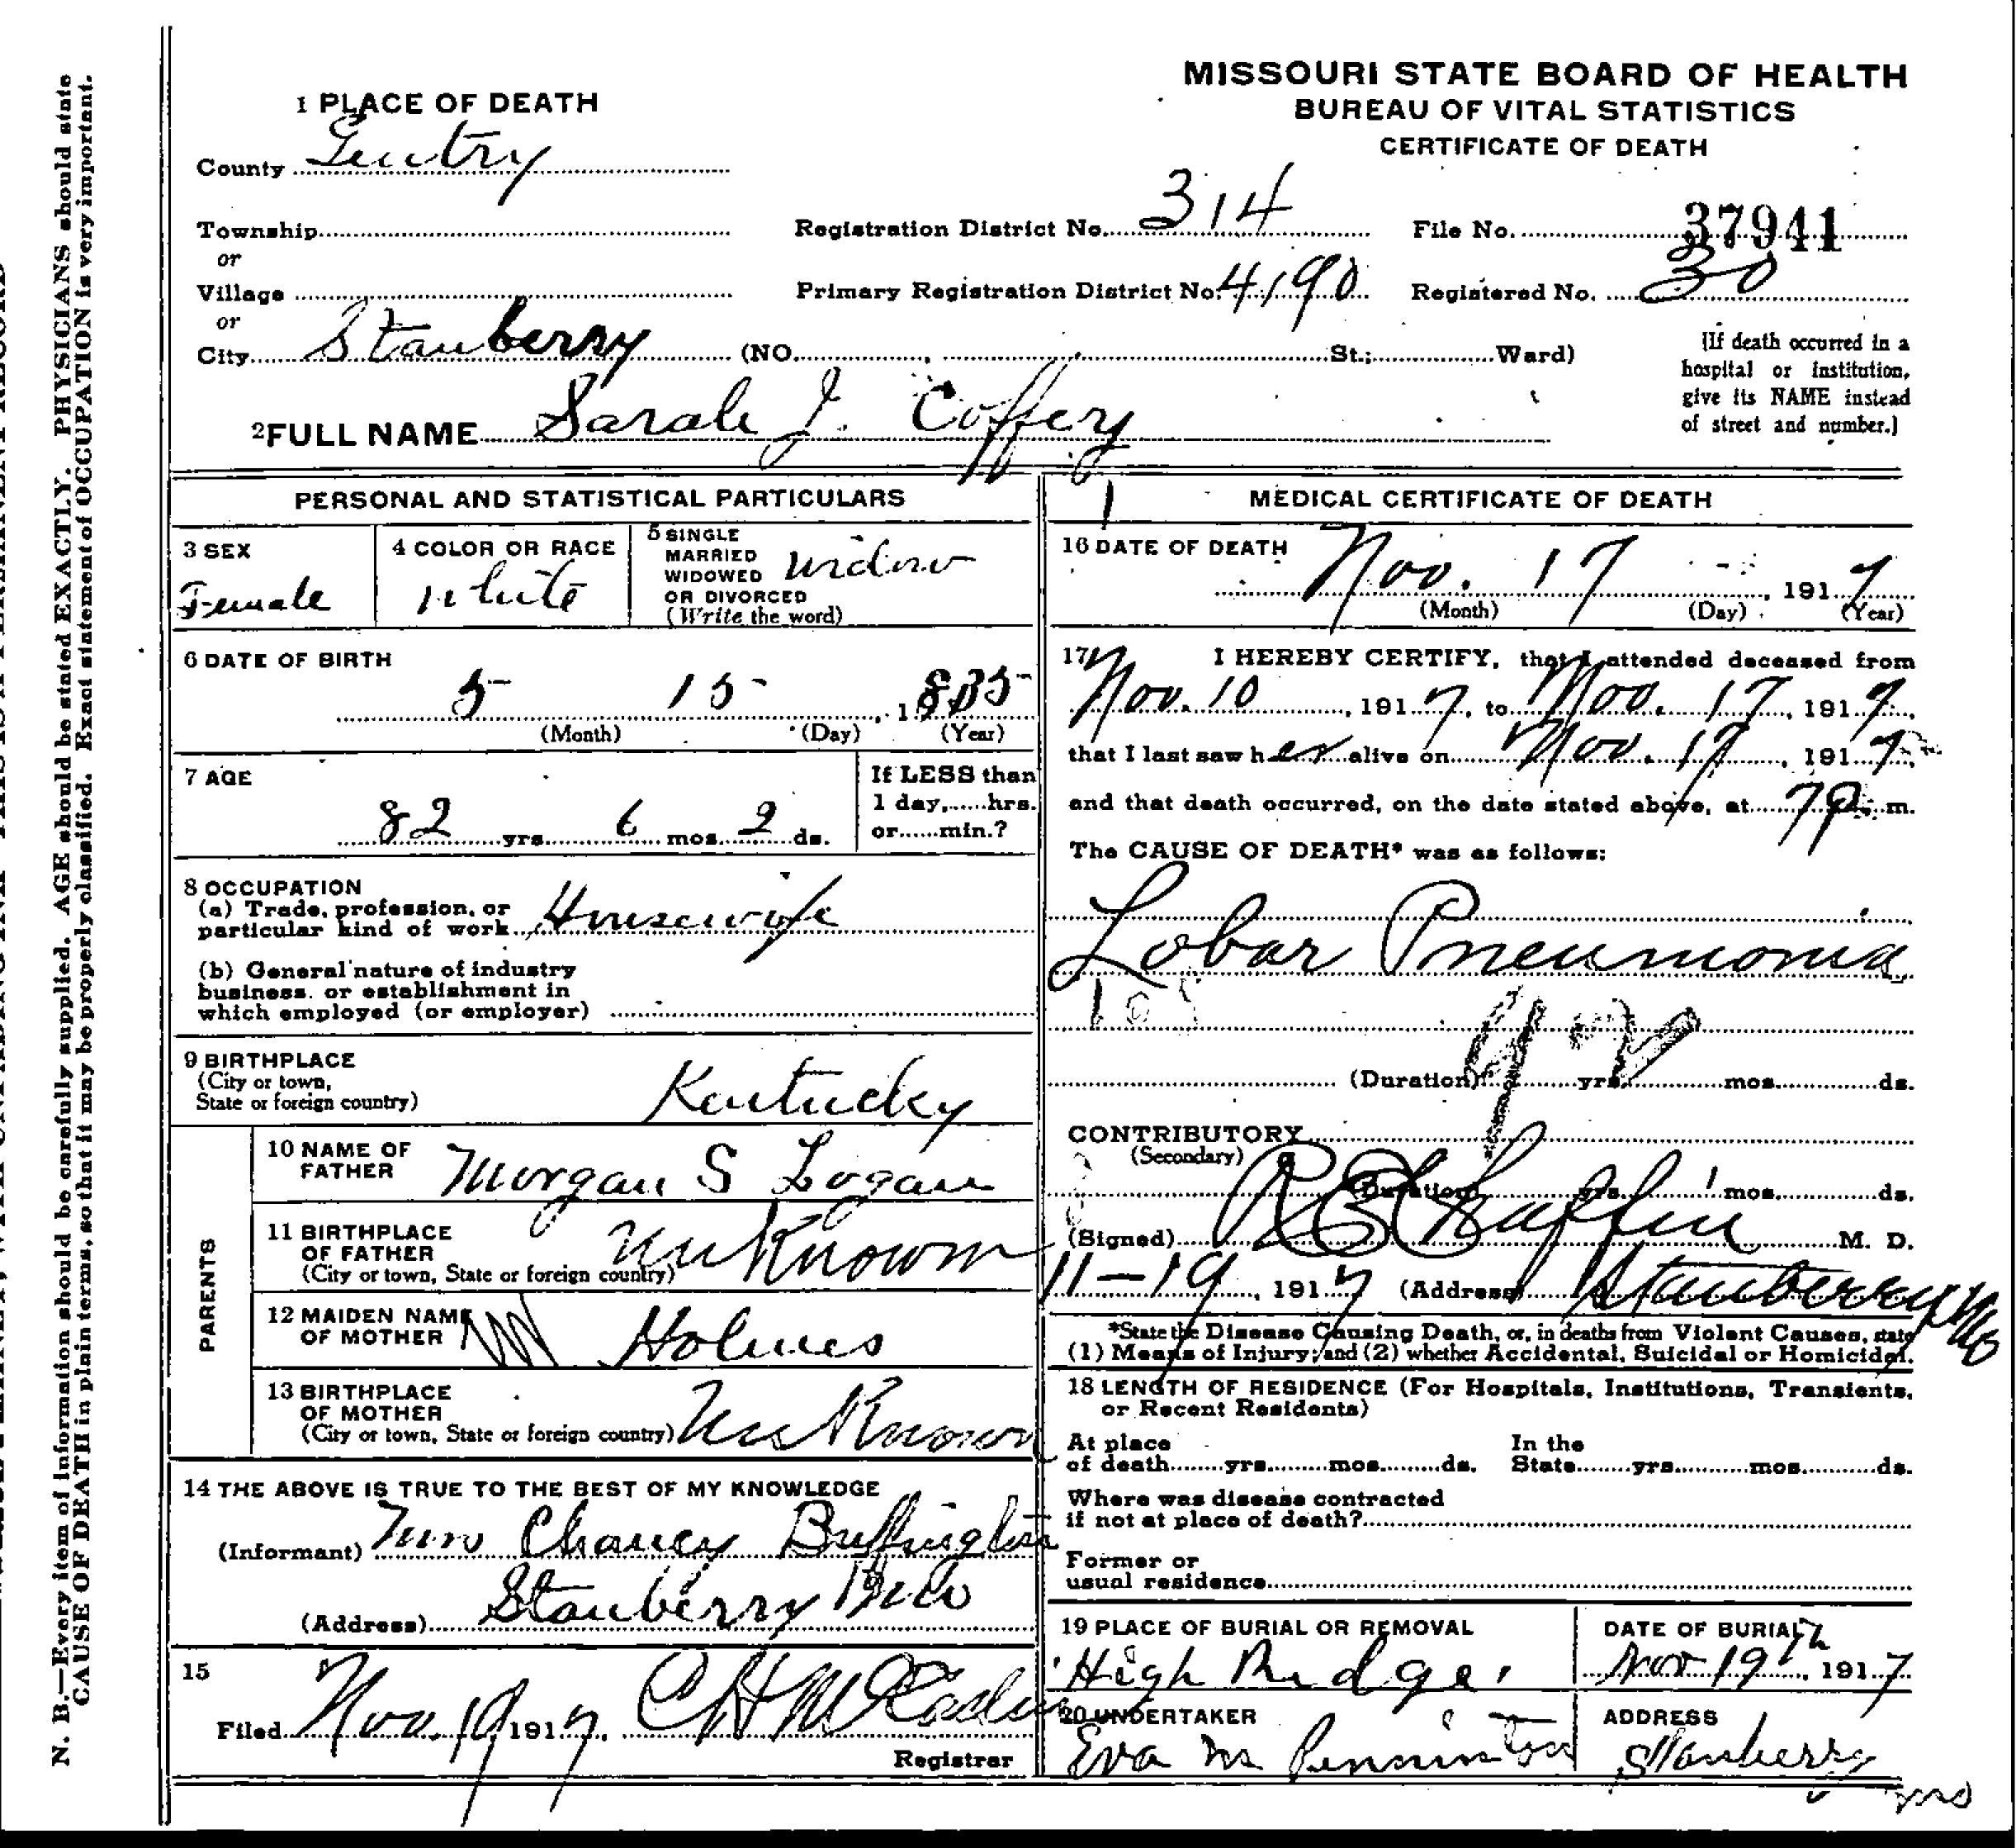 MISSOURI STATE BOARD OF HEALTH
BUREAU OF VITAL STATISTICS
CERTIFICATE OF DEATH
1 PLACE OF DEATH
County Gentry
Township
or
Village
or
City Stanberry (NO. , St.; Ward)
Registration District No. 314
File No. 37941
Primary Registration District No. 4190
Registered No. 30
[If death occurred in a
hospital or institution,
give its NAME instead
of street and number.]
2 FULL NAME Sarah J. Coffey
PERSONAL AND STATISTICAL PARTICULARS
3 SEX
Female
4 COLOR OR RACE
White
5 SINGLE
MARRIED
WIDOWED
OR DIVORCED
(Write the word)
Widow
6 DATE OF BIRTH
5 15 , 1835
(Month) (Day) (Year)
7 AGE
82 yrs. 6 mos. 2 ds.
If LESS than
1 day,......hrs.
or......min.?
8 OCCUPATION
(a) Trade, profession, or
particular kind of work Housewife
(b) General nature of industry
business, or establishment in
which employed (or employer)
9 BIRTHPLACE
(City or town,
State or foreign country)
Kentucky
PARENTS
10 NAME OF
FATHER
Morgan S Logan
11 BIRTHPLACE
OF FATHER
(City or town, State or foreign country)
unKnown
12 MAIDEN NAME
OF MOTHER
Holmes
13 BIRTHPLACE
OF MOTHER
(City or town, State or foreign country)
unKnown
14 THE ABOVE IS TRUE TO THE BEST OF MY KNOWLEDGE
(Informant) Chancy Buffington
(Address) Stanberry Mo
15
Filed Nov. 19 1917, C H
Registrar
MEDICAL CERTIFICATE OF DEATH
16 DATE OF DEATH
Nov. 17 , 1917
(Month) (Day) (Year)
17 I HEREBY CERTIFY, that I attended deceased from
Nov. 10 , 1917, to Nov. 17, 1917,
that I last saw her alive on Nov. 17, 1917,
and that death occurred, on the date stated above, at 7P. m.
The CAUSE OF DEATH* was as follows:
Lobar Pneumonia
92
(Duration) yrs. mos. ds.
CONTRIBUTORY
(Secondary)
(Duration) yrs. mos. ds.
(Signed) M. D.
11-19, 1917 (Address) Stanberry Mo
*State the Disease Causing Death, or, in deaths from Violent Causes, state
(1) Means of Injury; and (2) whether Accidental, Suicidal or Homicidal.
18 LENGTH OF RESIDENCE (For Hospitals, Institutions, Transients,
or Recent Residents)
At place
of death yrs. mos. ds.
In the
State yrs. mos. ds.
Where was disease contracted
if not at place of death?
Former or
usual residence
19 PLACE OF BURIAL OR REMOVAL
High Ridge
DATE OF BURIAL
Nov 19th, 1917
20 UNDERTAKER
Eva M Penninton
ADDRESS
Stanberry
Mo
N. B.—Every item of information should be carefully supplied. AGE should be stated EXACTLY. PHYSICIANS should state
CAUSE OF DEATH in plain terms, so that it may be properly classified. Exact statement of OCCUPATION is very important.